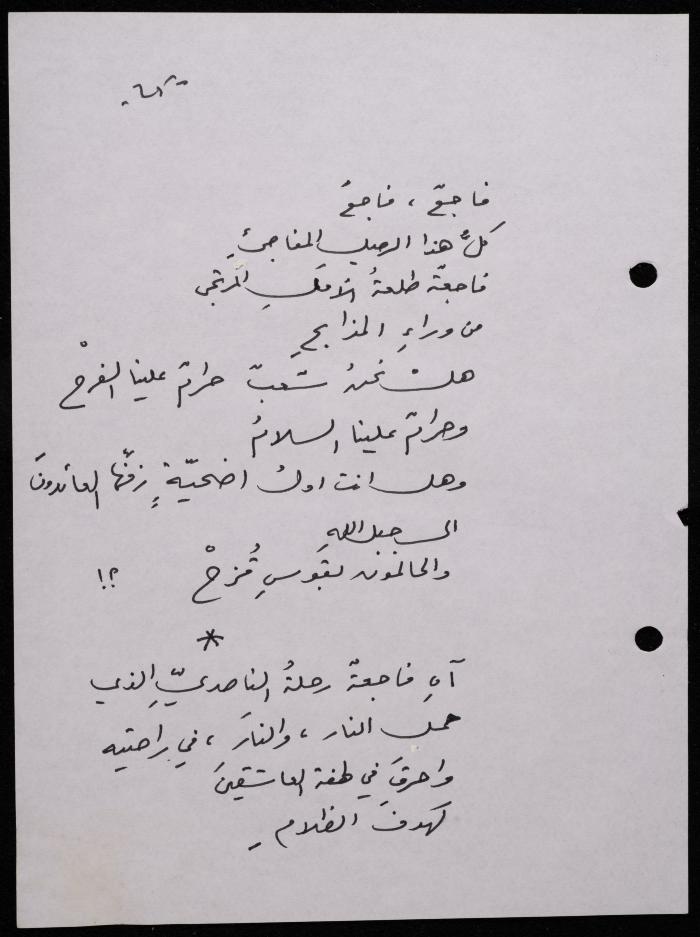 فاجعٌ ، فاجعُ
كلُّ هذا الرحيل المفاجئِ
فاجعةٌ طلعةُ الأملِ المرتجى
من وراءِ المذابحِ
هل نحنُ شعبٌ حرامٌ علينا الفرحْ
وحرامٌ علينا السلامُ
وهل انت اولُ اضحيّةٍ زفّها العائدونَ
الى جبل اللهِ
والحالمون بقَوسِ قُزحْ ؟!
*
آهِ فاجعةٌ رحلةُ الناصريِّ الذي
حمل النار ، والنارَ ، في راحتيه
واحرقَ في لهفة العاشقينَ
كهوفَ الظلامِ